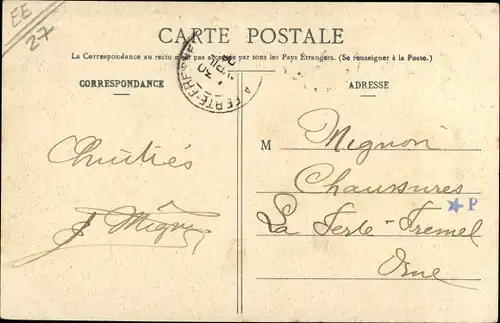 EE
27
CARTE POSTALE
La Correspondance au recto n'est pas acceptée par tons les Pays Étrangers. (Se renseigner à la Poste.)
CORRESPONDANCE
ADRESSE
LA FERTÉ-FRESNEL
Amitiés
J Mignon
M Mignon
Chaussures
P
La Ferté-Fresnel
Orne